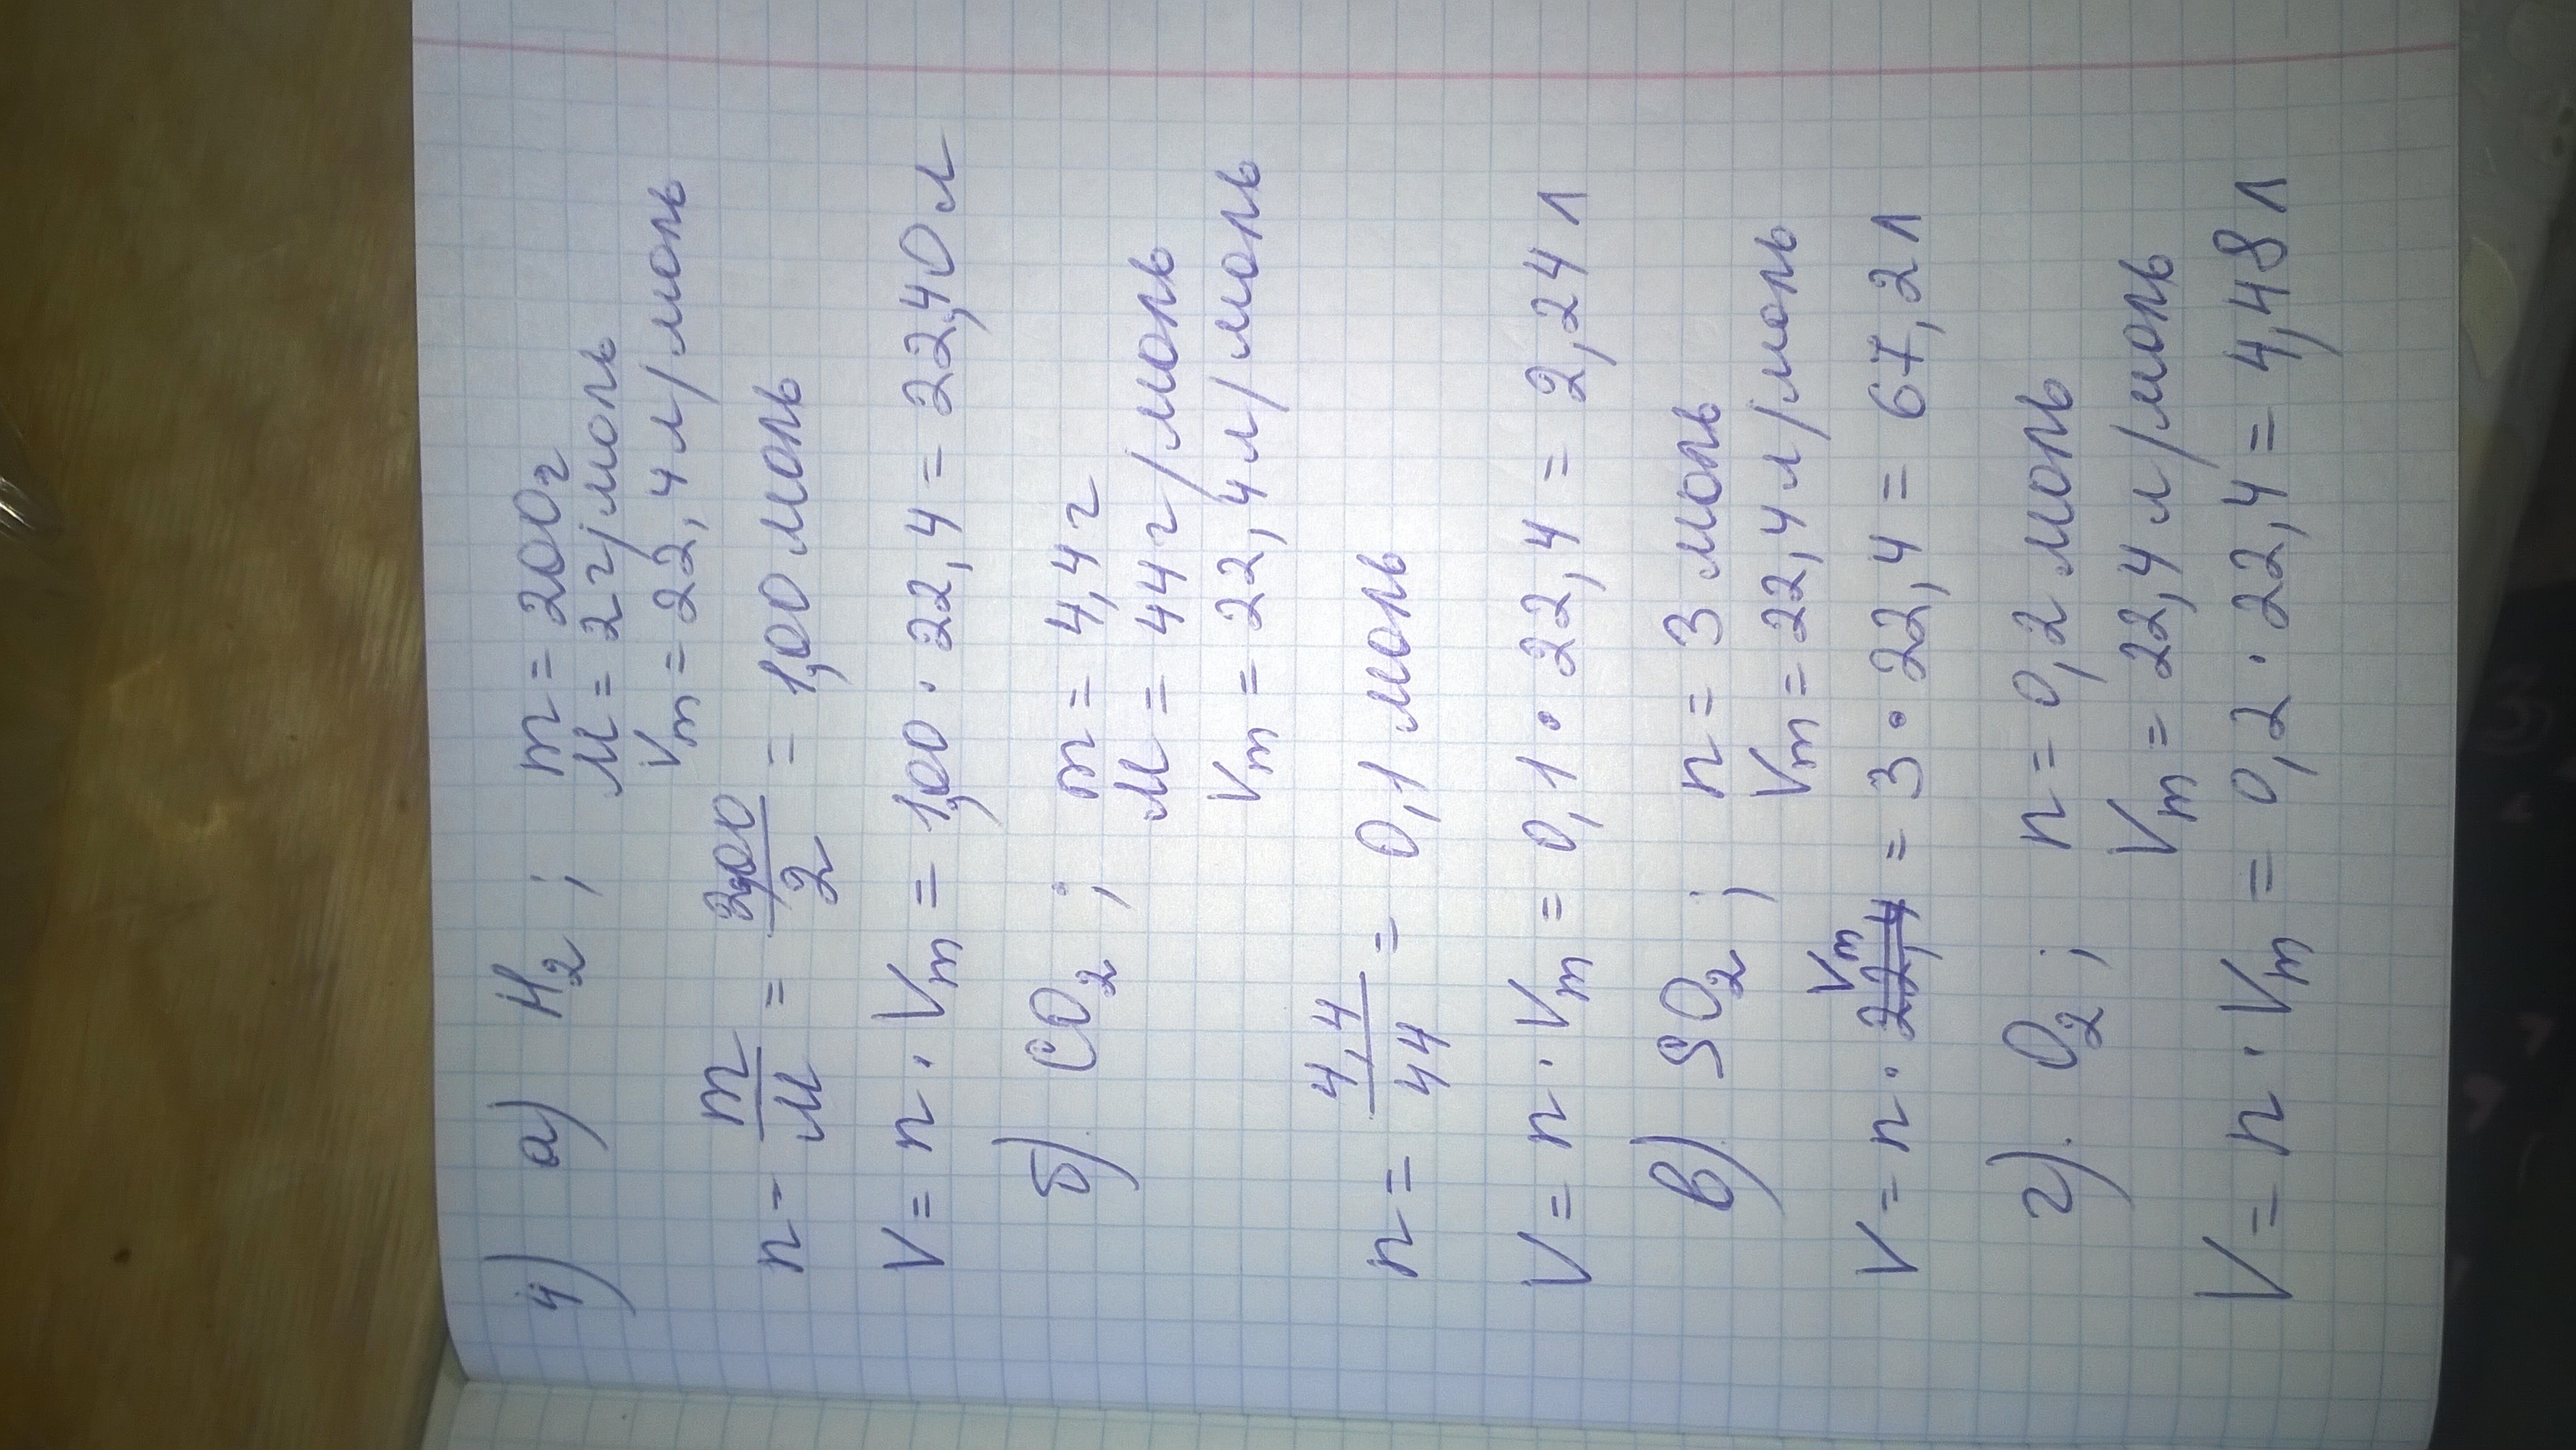 4) a) H₂ ; m = 200г
M = 2 г/моль
Vm = 22,4 л/моль
n - m/M = 200/2 = 100 моль
V = n · Vm = 100 · 22,4 = 2240 л
б) CO₂ ; m = 4,4 г
M = 44 г/моль
Vm = 22,4 л/моль
n = 4,4/44 = 0,1 моль
V = n · Vm = 0,1 · 22,4 = 2,24 л
в) SO₂ ; n = 3 моль
Vm = 22,4 л/моль
V = n · Vm = 3 · 22,4 = 67,2 л
г). O₂ ; n = 0,2 моль
Vm = 22,4 л/моль
V = n · Vm = 0,2 · 22,4 = 4,48 л